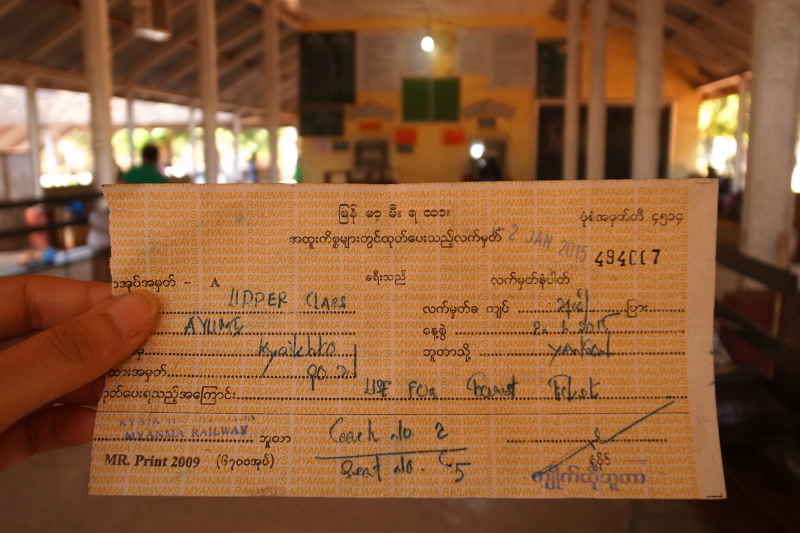 မြန် မာ့ မီး ရ ထား
ပုံစံအမှတ်တီ ၄၅၁၄
အထူးကိစ္စများတွင်ထုတ်ပေးသည့်လက်မှတ်
2 JAN 2015
494007
အုပ်အမှတ် - A
ခရီးသည်
လက်မှတ်နံပါတ်
UPPER CLASS
လက်မှတ်ခ ကျပ် ပြား
AYUMI
နေ့စွဲ 2. 1. 2015
Kyaikhto
ဘူတာသို့
ထားအမှတ်
ထုတ်ပေးရသည့်အကြောင်း USE FOR Tourist
MYANMA RAILWAY ဘူတာ
Coach No 2
MR. Print 2009 (၆၇၀၀အုပ်)
Seat No. C5
ကျိုက်ထိုဘူတာ